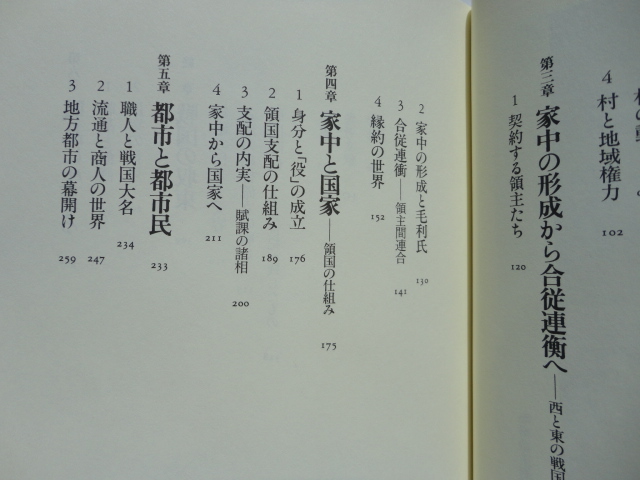 4 村と地域権力 102
第三章 家中の形成から合従連衡へ——西と東の戦国
1 契約する領主たち 120
2 家中の形成と毛利氏 130
3 合従連衝——領主間連合 141
4 縁約の世界 152
第四章 家中と国家——領国の仕組み 175
1 身分と「役」の成立 176
2 領国支配の仕組み 189
3 支配の内実——賦課の諸相 200
4 家中から国家へ 211
第五章 都市と都市民 233
1 職人と戦国大名 234
2 流通と商人の世界 247
3 地方都市の幕開け 259